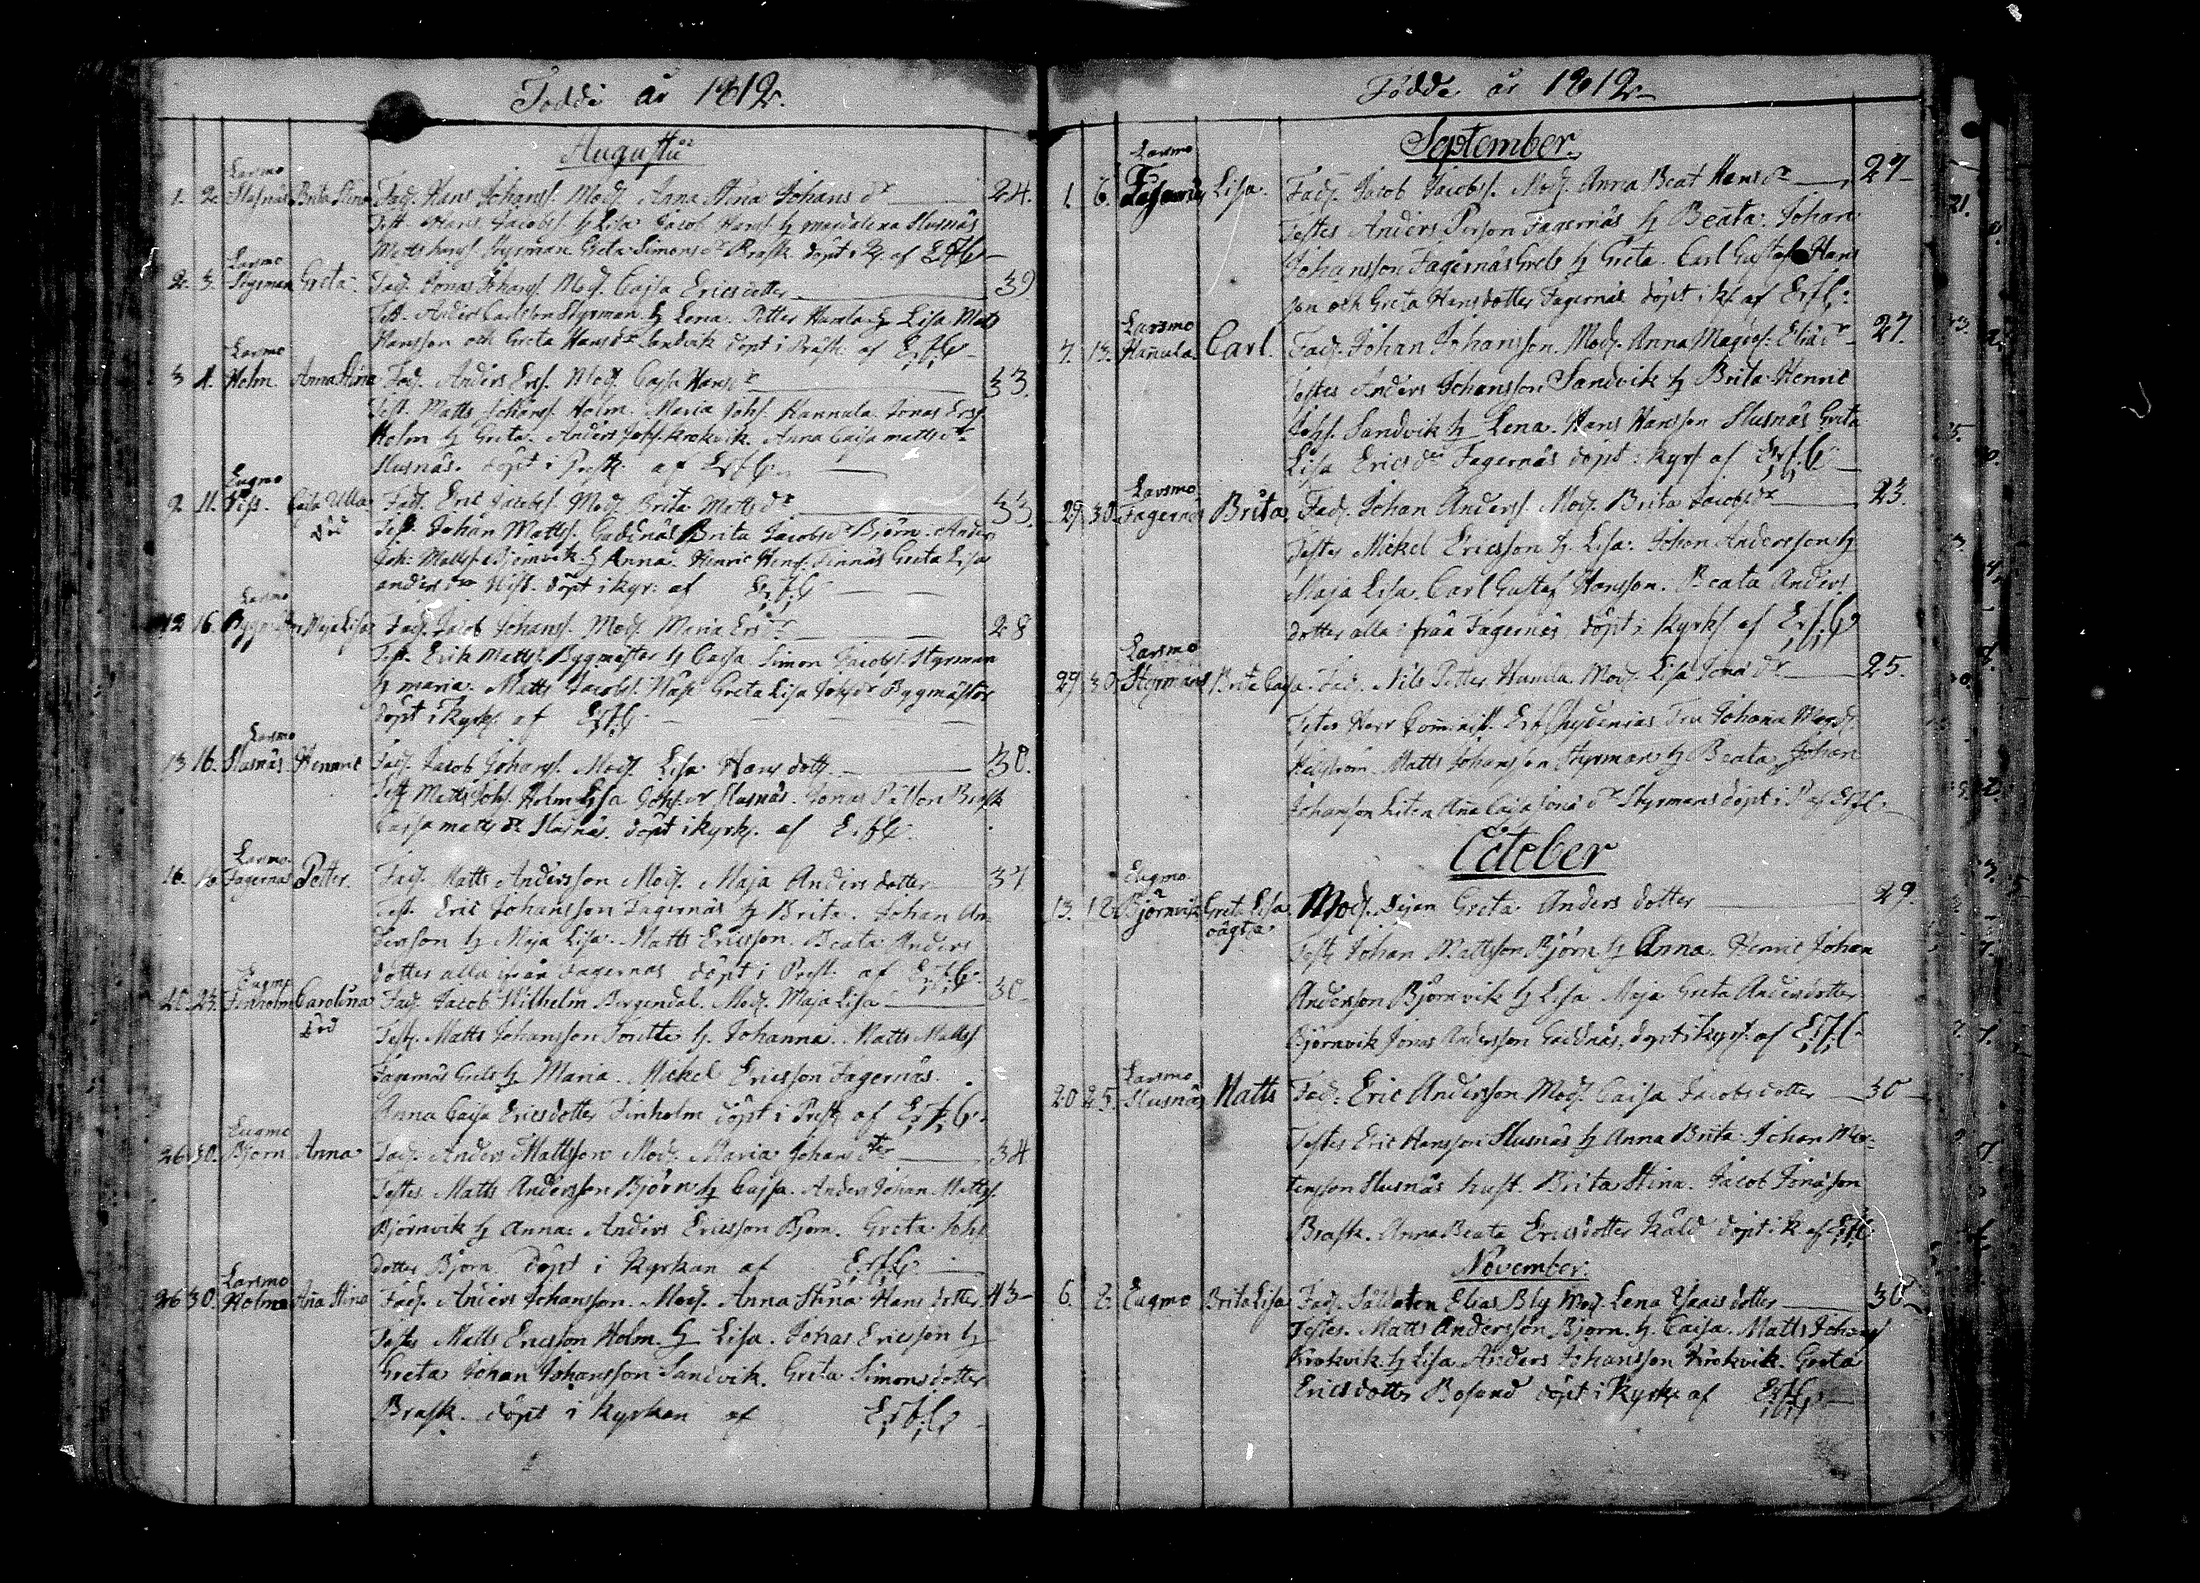 Födde år 1812.
Augusti
Larsmo
1. 2. Slusnäs Brita Stina Fad. Hans Johanss. Mod. Anna Stina Johans dr 24.
Test. Hans Jacobss. h Lisa Jacob Hanss. h magdalena Slusnäs
Matts Styrman Greta Simons dr Brask döpt i af E.f.C.
Larsmo
2. 3. Styrman Greta Fad. Jonas Johanss. Mod. Cajsa Ericsdotter 39
Test. Anders Carlsson Styrman h Lena. Petter Humla h Lisa Matts
Hansson och Greta Hans dr Sandvik döpt i Präst. af E.f.C.
Larsmo
3 4. Holm Anna Stina Fad. Anders Erss. Mod. Cajsa Hans dr 33.
Test. Matts Johanss. Holm. Maria Johs. Kannula Jonas Erss.
Holm h Greta. Anders Johs. Krokvik. Anna Cajsa matts dr
Slusnäs. döpt i Prest. af E.f.C.
Eugmo
9. 11. Cajsa Ulla Fad. Eric Jacobss. Mod. Brita Matts dr 33.
död Test. Johan Mattss. Gäddnäs Brita Jacobs dr Björn. Anders
Joh. Mattss. Björnvik h Anna. Henric Greta Lisa
anders dr döpt i kyr: af E.f.C.
Larsmo
12 16. Maja Lisa Fad. Jacob Johanss. Mod. Maria Ers dr 28
Test. Erik Mattss. Bygmäster h Cajsa Simon Jacobss. Styrman
h maria. Matts Jacobss. Näse Greta Lisa Johs dr Bygmäster
döpt i kyrk. af E.f.C.
Larsmo
13 16. Slusnäs Henric Fad. Jacob Johanss. Mod. Lisa Hans dott. 30.
Test Matts Johs. Holm Lisa Johs. dr Slusnäs. Jonas Brask
Cajsa matts dr Slusnäs. döpt i kyrk. af E.f.C.
Larsmo
16. 16 Fagernäs Petter. Fad. Matts Andersson Mod. Maja Anders dotter 37
Test. Eric Johansson Fagernäs h Brita. Johan An
dersson h Maja Lisa. Matts Ericsson. Beata Anders
dotter alla ifrån Fagernäs döpt i Prest. af E.f.C.
Eugmo
20. 23. Finholm Carolina Fad. Jacob Wilhelm Bergendal. Mod. Maja Lisa 30
död Test. Matts Johansson h. Johanna. Matts Mattss.
Fagernäs Grels h Maria. Mickel Ericsson Fagernäs
Anna Cajsa Ericsdotter Finholm döpt i Prest. af E.f.C.
Eugmo
26 30. Björn Anna Fad. Anders Mattsson Mod. Maria Johans dtr 34
Testes Matts Andersson Björn h Cajsa. Anders Johan Mattss.
Björnvik h Anna. Anders Ericsson Björn. Greta Johs
dotter Björn. döpt i Kyrkan af E.f.C.
Larsmo
26 30. Holma Ana Stina Fad. Anders Johansson. Mod. Anna Stina Hans dotter 43
Testes Matts Ericsson Holm h Lisa. Johas Ericsson h
Greta Johan Johansson Sandvik. Greta Simonsdotter
Brask. döpt i Kyrkan af E.f.C.
Födde år 1812
September.
Larsmo
1. 6. Fagernäs Lisa. Fad. Jacob Jacobss. Mod. Anna Beat Hans dr 27
Testes Anders Person Fagernäs h Beata. Johan
Johansson Fagernäs Grels h Greta. Carl Gustaf Hans
son och Greta Hansdotter Fagernäs döpt i k. af E.f.C.
Larsmo
7. 13. Hanula Carl. Fad. Johan Johansson. Mod. Anna Magd. Elia dr 27.
Testes Anders Johansson Sandvik h Brita. Henric
Johs. Sandvik h Lena. Hans Hansson Slusnäs Greta
Lisa Erics dr Fagernäs döpt i kyrk af E.f.C.
Larsmo
29 30. Fagernäs Brita Fad. Johan Anderss. Mod. Brita Jacobs dr 23.
Testes Mickel Ericsson h. Lisa. Johan Andersson h
Maja Lisa. Carl Gustaf Hansson. Beata Anders
dotter alla ifrån Fagernäs. döpt i kyrk af E.f.C.
Larsmo
29 30. Styrmans Brita Cajsa. Fad. Nils Petter Humla Mod. Lisa Jonas dr 25.
Testes Herr Comminist. E.f. Chydenius Fru Johana Mard.
Hellström. Matts Johansson Styrman h Beata Johan
Johansson Liten Ana Cajsa Jona dr Styrmans döpt i P. af E.f.C.
October
Eugmo
13. 18. Björnvik Greta Lisa Mod. Pigan Greta Anders dotter 29.
oägta Test. Johan Mattsson Björn h Anna. Henric Johan
Andersson Björnvik h Lisa Maja. Greta Andersdotter
Björnvik Jonas Andersson Gäddnäs. döpt i kyrk. af E.f.C.
Larsmo
20 25. Slusnäs Matts Fad. Eric Andersson Mod. Cajsa Jacobsdotter 30
Testes Eric Hansson Slusnäs h Anna Brita. Johan Mar
tensson Slusnäs hust. Brita Stina. Jacob Jonasson
Brask. Anna Beata Ericsdotter Kåld döpt i k. af E.f.C.
November.
6. 8. Eugmo Brita Lisa Fad. Soldaten Elias Bly Mod. Lena Isaacs dotter 30
Testes. Matts Andersson Björn. h. Cajsa. Matts Johans
Krokvik. h Lisa Anders Johansson Krokvik. Greta
Ericsdotter Bosund döpt i Kyrk. af E.f.C.